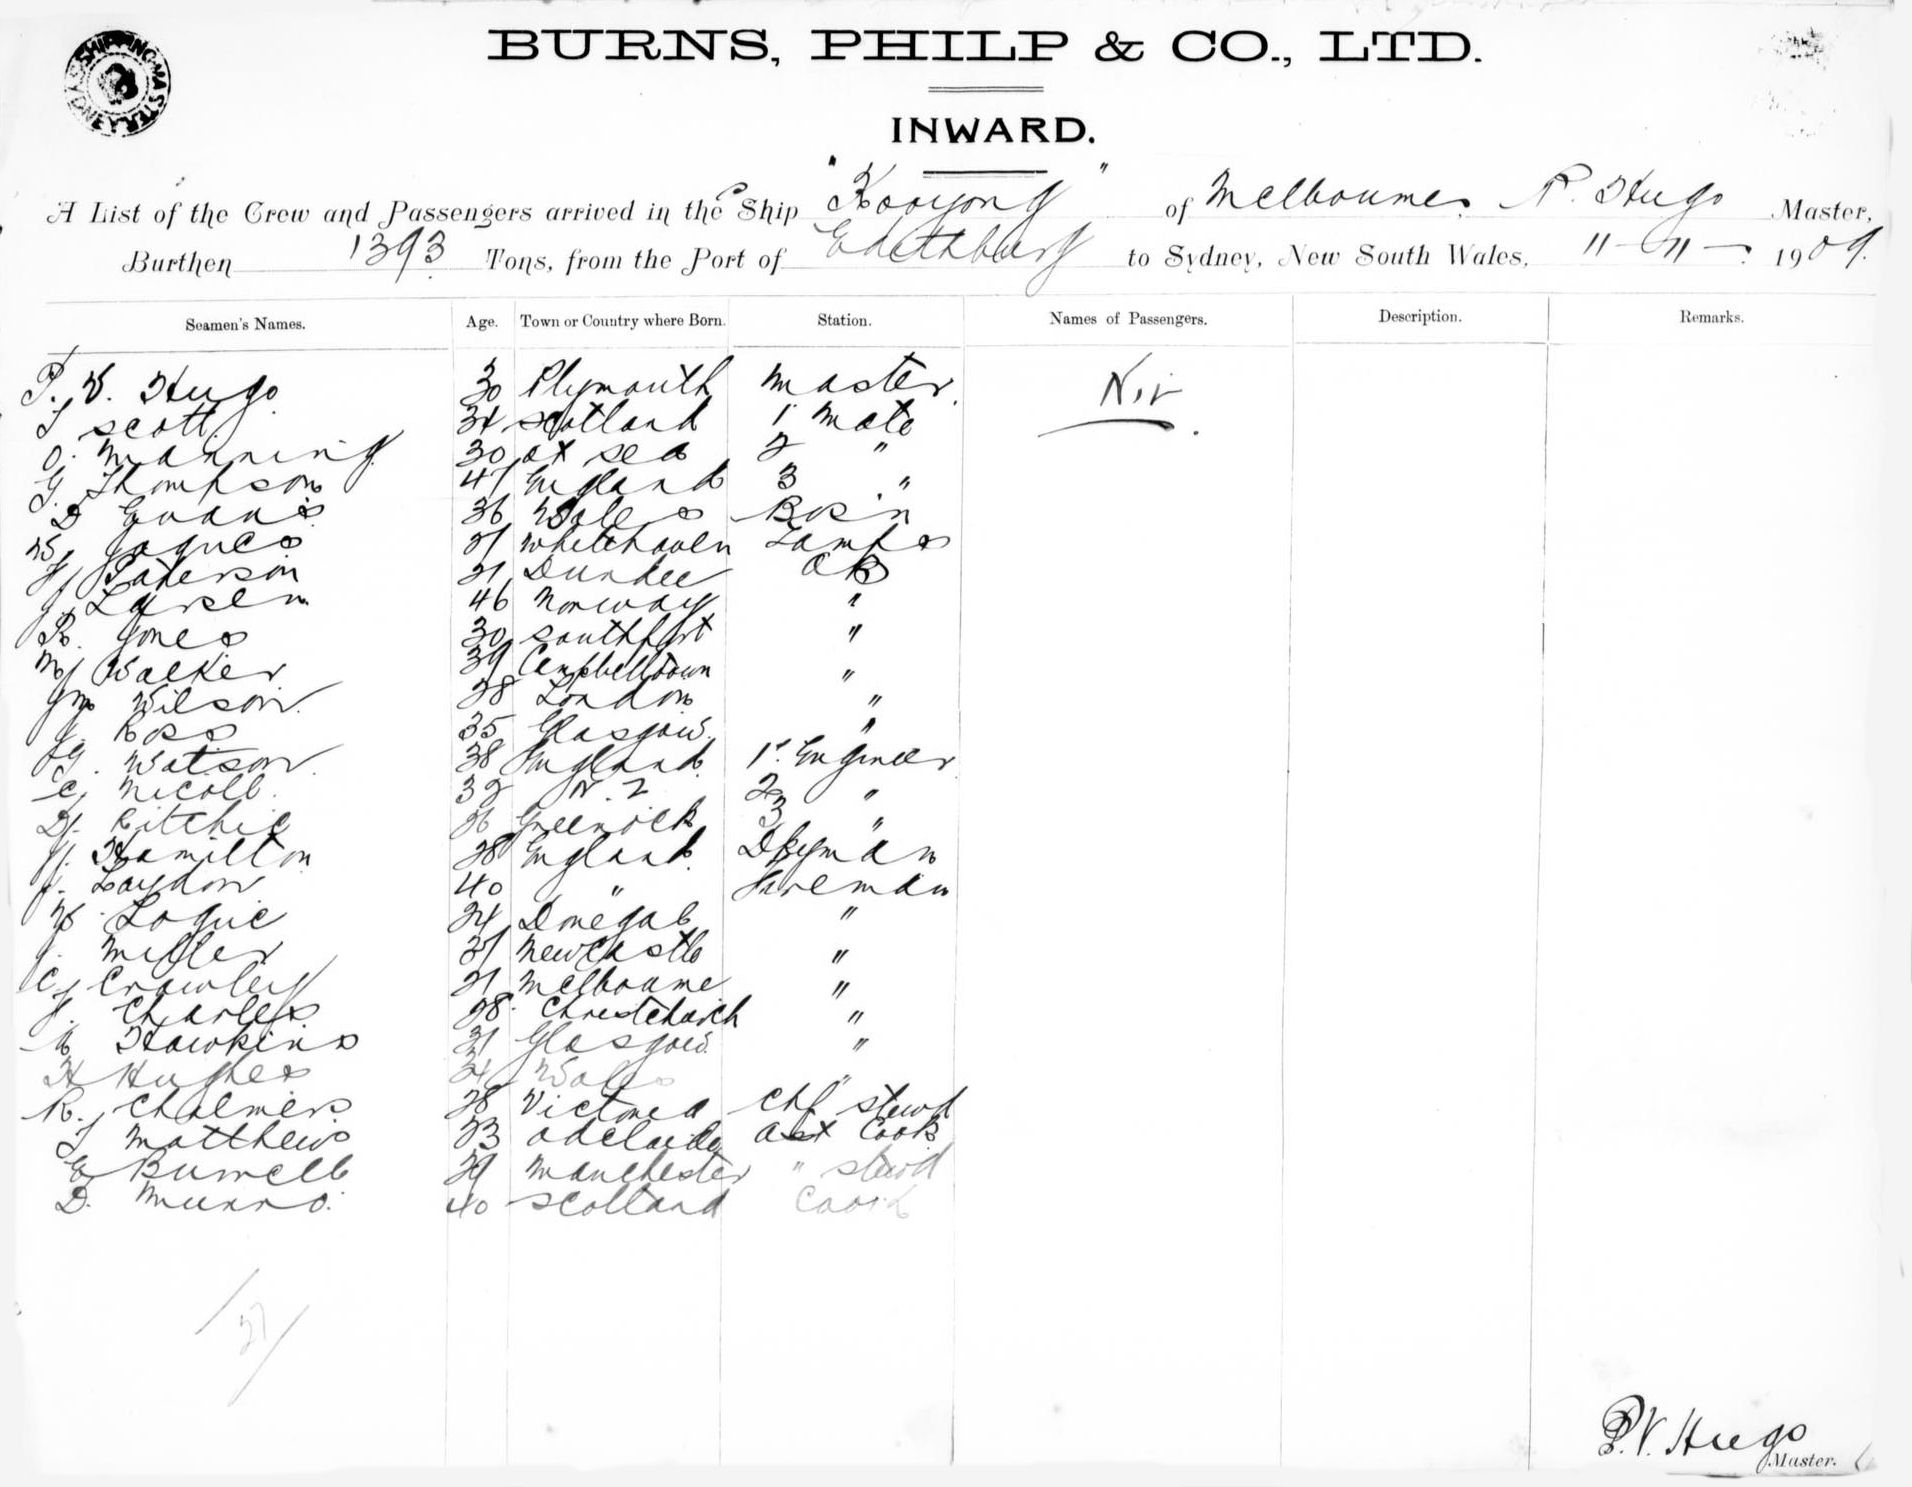 BURNS, PHILP & CO., LTD.
INWARD.
SHIPPING MASTER SYDNEY
A List of the Crew and Passengers arrived in the Ship "Kooyong" of Melbourne, P. Hugo Master,
Burthen 1393 Tons, from the Port of Edithburg to Sydney, New South Wales, 11-11-1909.
Seamen's Names. Age. Town or Country where Born. Station. Names of Passengers. Description. Remarks.
P. V. Hugo 30 Plymouth Master. Nil
T Scott 34 Scotland 1 Mate
O. Manning 30 at sea 2 "
G. Thompson 47 England 3 "
D Evans 36 Wales Bos'n
Jaques Whitehaven Lamps
Paterson 21 Dundee AB
J Larsen 46 Norway "
R. Jones 30 Southport "
M Walker 39 Campbelltown "
Wm Wilson 28 London "
J. Ross 35 Glasgow. "
G. Watson 38 England 1st Engineer
C. Nicoll. 32 N. Z 2 "
D. Ritchie 26 Greenock 3 "
J. Hamilton 28 England. Dkyman
J. Laydon 40 " Fireman
Logue 24 Donegal "
J. Miller Newcastle "
C. Crowley 21 Melbourne "
J. Charles 28. Christchurch "
Hawkins Glasgow. "
H Hughes Wales "
R. Chalmers 28 Victoria Chf stewd
T Matthews 23 Adelaide Ast Cook
E Burnell 29 Manchester " stewd
D. Munro. 40 Scotland Cook
27
P. V. Hugo
Master.